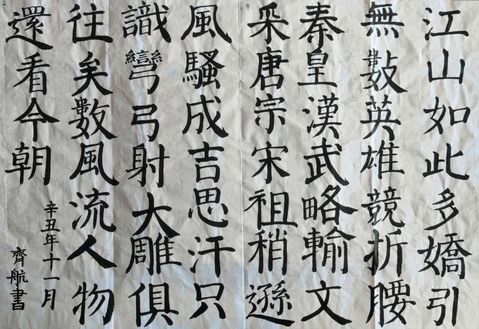 江山如此多嬌引
無數英雄競折腰
秦皇漢武略輸文
采唐宗宋祖稍遜
風騷成吉思汗只
識彎弓射大雕俱
往矣數風流人物
還看今朝
辛丑年十一月
齊航書